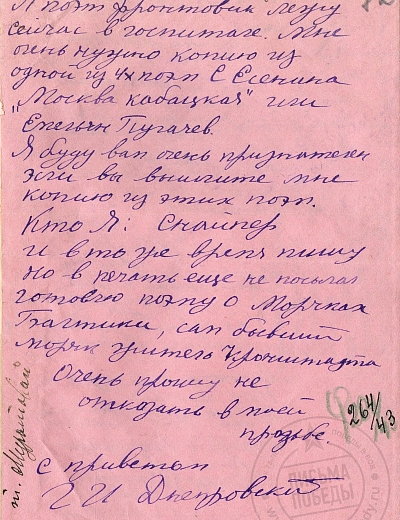 Я поэт фронтовик лежу
сейчас в госпитале. Мне
очень нужно копию из
одной из 4х поэм С Есенина
„Москва кабацкая" или
Емельян Пугачев.
Я буду вам очень признателен
если вы вышлите мне
копию из этих поэм.
Кто Я: снайпер
и в то же время пишу
но в печать еще не посылал
готовлю поэму о Моряках
Балтики, сам бывший
моряк житель Кронштадта
Очень прошу не
отказать в моей
прозьбе.
с приветом
Г И Днепровский
264/43
ПИСЬМА
ПОБЕДЫ